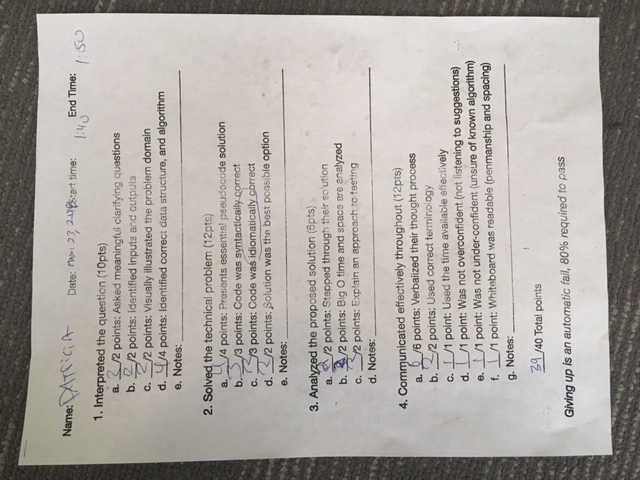 Name: PATRICIA Date: 27, Start time: 1:40 End Time: 1:50
1. Interpreted the question (10pts)
a. 2/2 points: Asked meaningful clarifying questions
b. 2/2 points: Identified inputs and outputs
c. 2/2 points: Visually illustrated the problem domain
d. 4/4 points: Identified correct data structure, and algorithm
e. Notes:
2. Solved the technical problem (12pts)
a. 4/4 points: Presents essential pseudocode solution
b. 3/3 points: Code was syntactically correct
c. /3 points: Code was idiomatically correct
d. 2/2 points: Solution was the best possible option
e. Notes:
3. Analyzed the proposed solution (6pts)
a. 2/2 points: Stepped through their solution
b. 2/2 points: Big O time and space are analyzed
c. 2/2 points: Explain an approach to testing
d. Notes:
4. Communicated effectively throughout (12pts)
a. 6/6 points: Verbalized their thought process
b. 2/2 points: Used correct terminology
c. 1/1 point: Used the time available effectively
d. 1/1 point: Was not overconfident (not listening to suggestions)
e. 1/1 point: Was not under-confident (unsure of known algorithm)
f. 1/1 point: Whiteboard was readable (penmanship and spacing)
g. Notes:
39/40 Total points
Giving up is an automatic fail, 80% required to pass